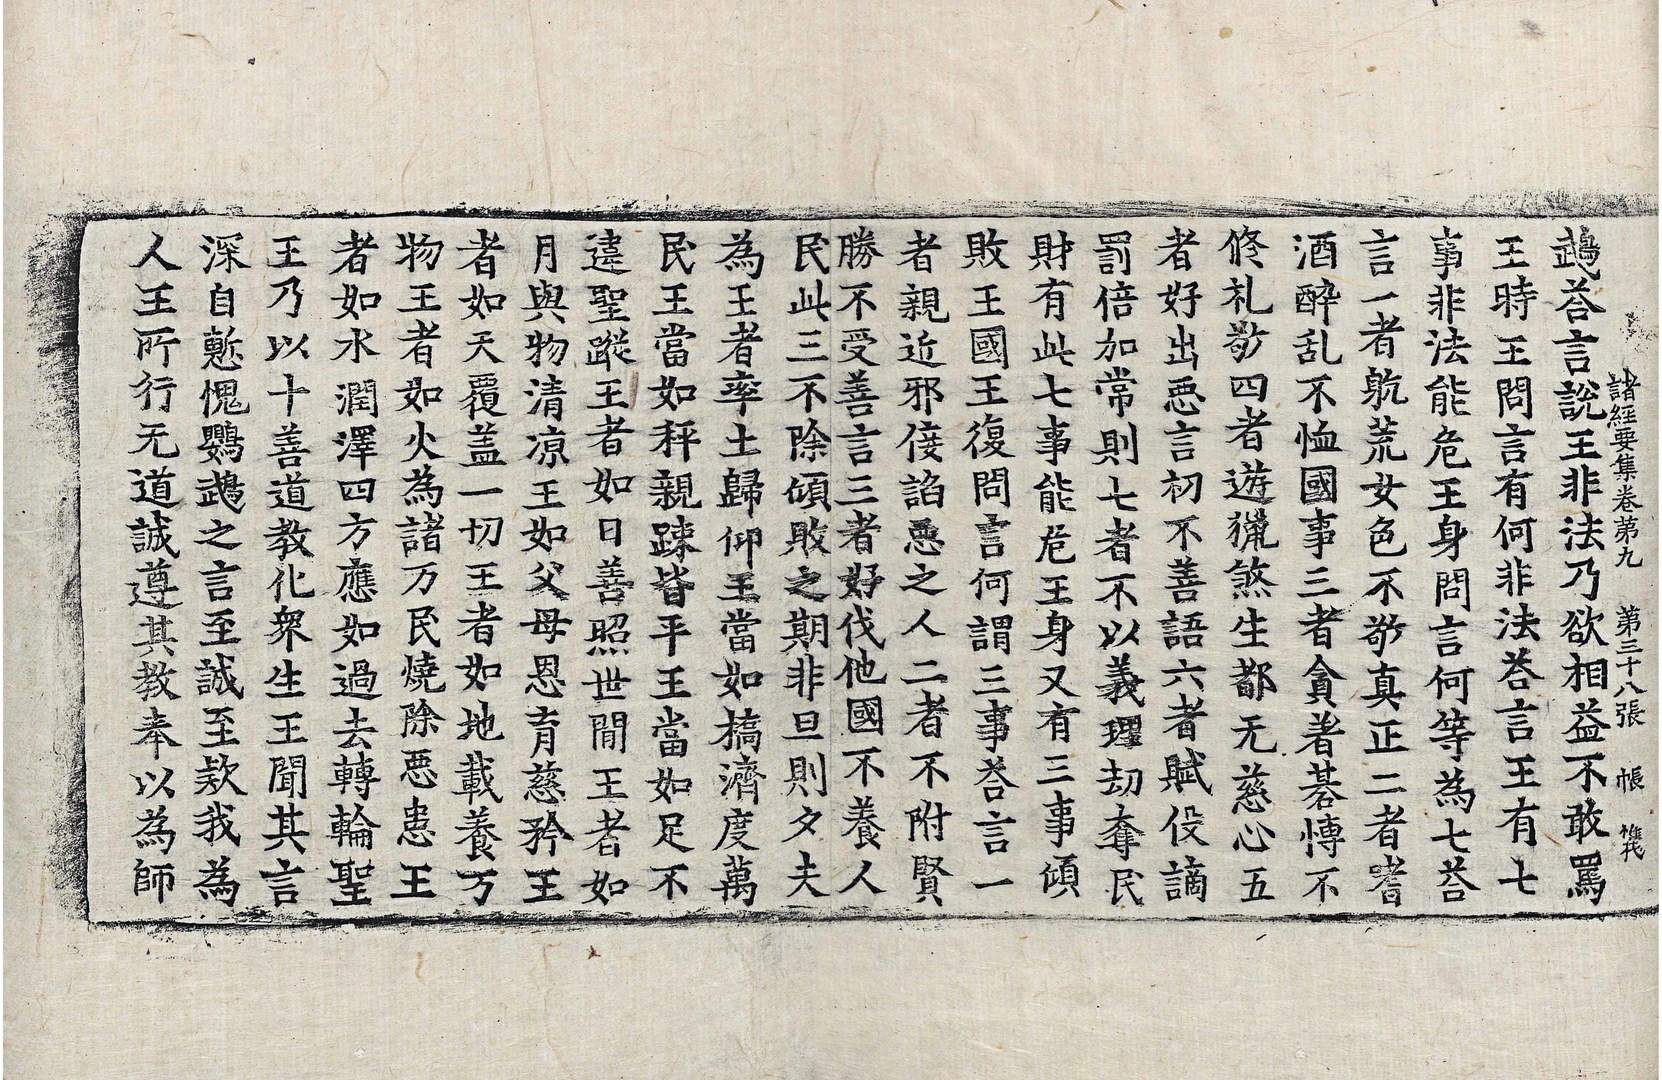 諸經要集卷第九 第三十八張 帳
鵡荅言說王非法乃欲相益不敢罵
王時王問言有何非法荅言王有七
事非法能危王身問言何等為七荅
言一者躭荒女色不敬真正二者嗜
酒醉乱不恤國事三者貪著碁愽不
修礼敬四者遊獵煞生都无慈心五
者好出惡言初不善語六者賦役謫
罰倍加常則七者不以義理劫奪民
財有此七事能危王身又有三事傾
敗王國王復問言何謂三事荅言一
者親近邪佞諂惡之人二者不附賢
勝不受善言三者好伐他國不養人
民此三不除傾敗之期非旦則夕夫
為王者率土歸仰王當如橋濟度萬
民王當如秤親踈皆平王當如足不
違聖蹤王者如日善照世間王者如
月與物清涼王如父母恩育慈矜王
者如天覆盖一切王者如地載養万
物王者如火為諸万民燒除惡患王
者如水潤澤四方應如過去轉輪聖
王乃以十善道教化衆生王聞其言
深自慙愧鸚鵡之言至誠至欵我為
人王所行无道誠遵其教奉以為師